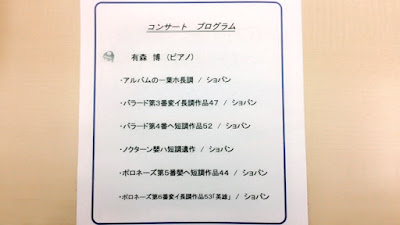 コンサート プログラム
有森 博 (ピアノ)
・アルバムの一葉ホ長調 / ショパン
・バラード第3番変イ長調作品47 / ショパン
・バラード第4番ヘ短調作品52 / ショパン
・ノクターン嬰ハ短調遺作 / ショパン
・ポロネーズ第5番嬰ヘ短調作品44 / ショパン
・ポロネーズ第6番変イ長調作品53「英雄」 / ショパン